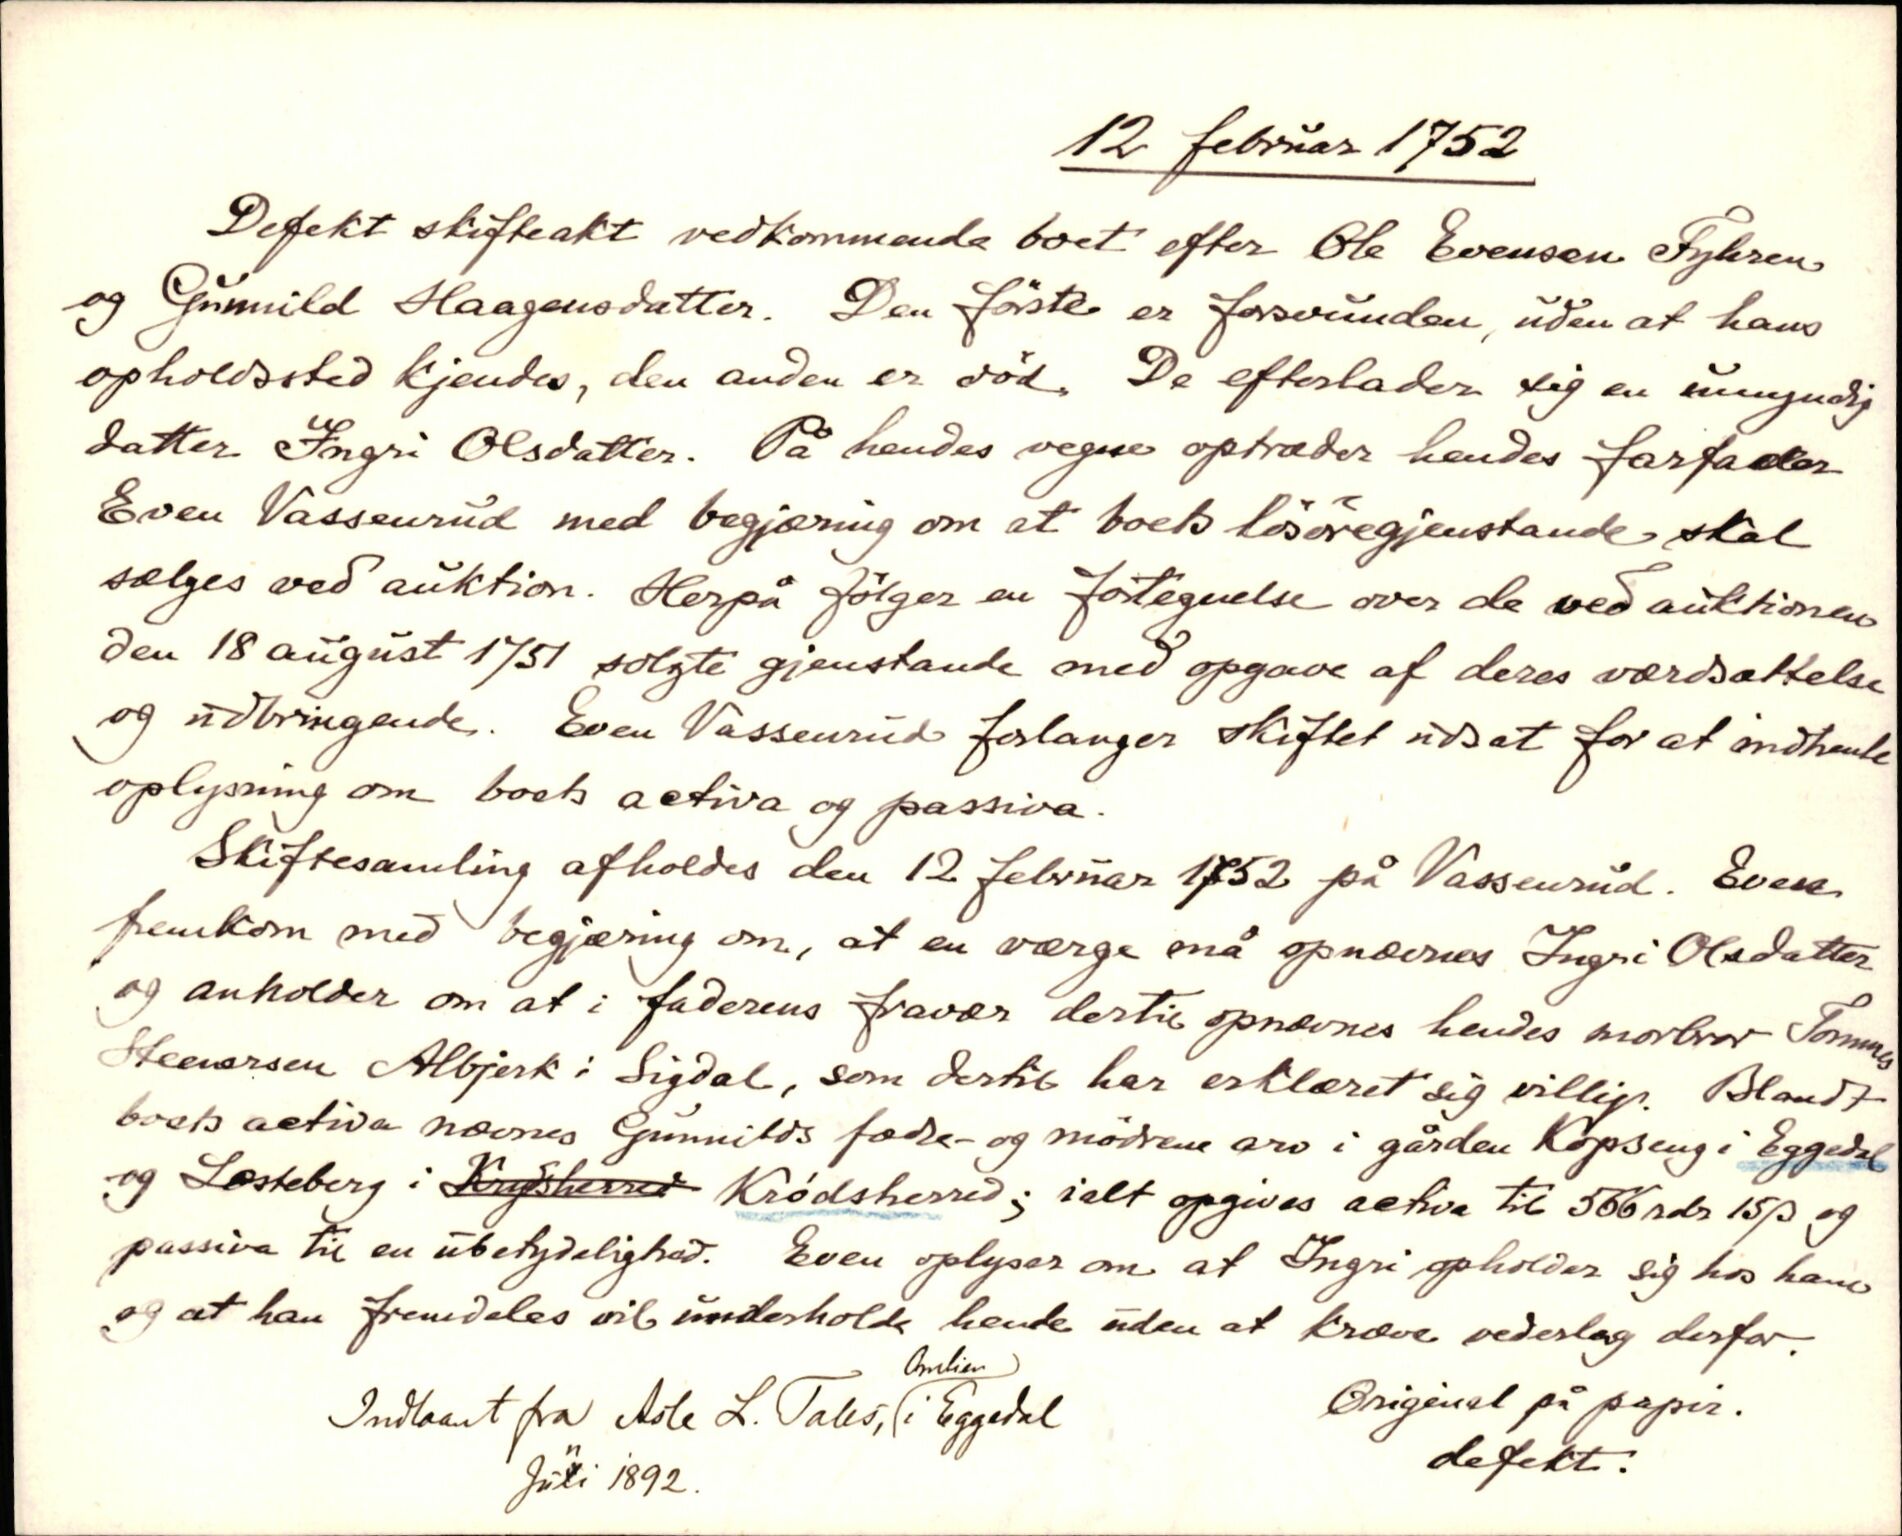 12 februar 1752
Defekt skifteakt vedkommende boet efter Ole Evensen Fyhren
og Gunnild Haagensdatter. Den förste er forsvunden, uden at hans
opholdssted kjendes, den anden er död. De efterlader sig en umyndig
datter Ingri Olsdatter. På hendes vegne optræder hendes farfader
Even Vassenrud med begjæring om at boets lösöregjenstande skal
sælges ved auktion. Herpå fölger en fortegnelse over de ved auktionen
den 18 august 1751 solgte gjenstande med opgave af deres værdsættelse
og udbringende. Even Vassenrud forlanger skiftet udsat for at indhente
oplysning om boets activa og passiva.
Skiftesamling afholdes den 12 februar 1752 på Vassenrud. Even
fremkom med begjæring om, at en værge må opnævnes Ingri Olsdatter
og anholder om at i faderens fravær dertil opnævnes hendes morbror Tommes
Steenersen Albjerk i Sigdal, som dertil har erklæret sig villig. Blandt
boets activa nævnes Gunnilds fædre- og mödrene arv i gården Kopseng i Eggedal
og Læsteberg i Krydsherred Krödsherred; ialt opgives activa til 566 rdr 15 β og
passiva til en ubetydelighed. Even oplyser om at Ingri opholder sig hos ham
og at han fremdeles vil underholde hende uden at kræve vederlag derfor.
Omlien
Indlaant fra Asle L. Tales, i Eggedal
Juni 1892.
Original på papir.
defekt.